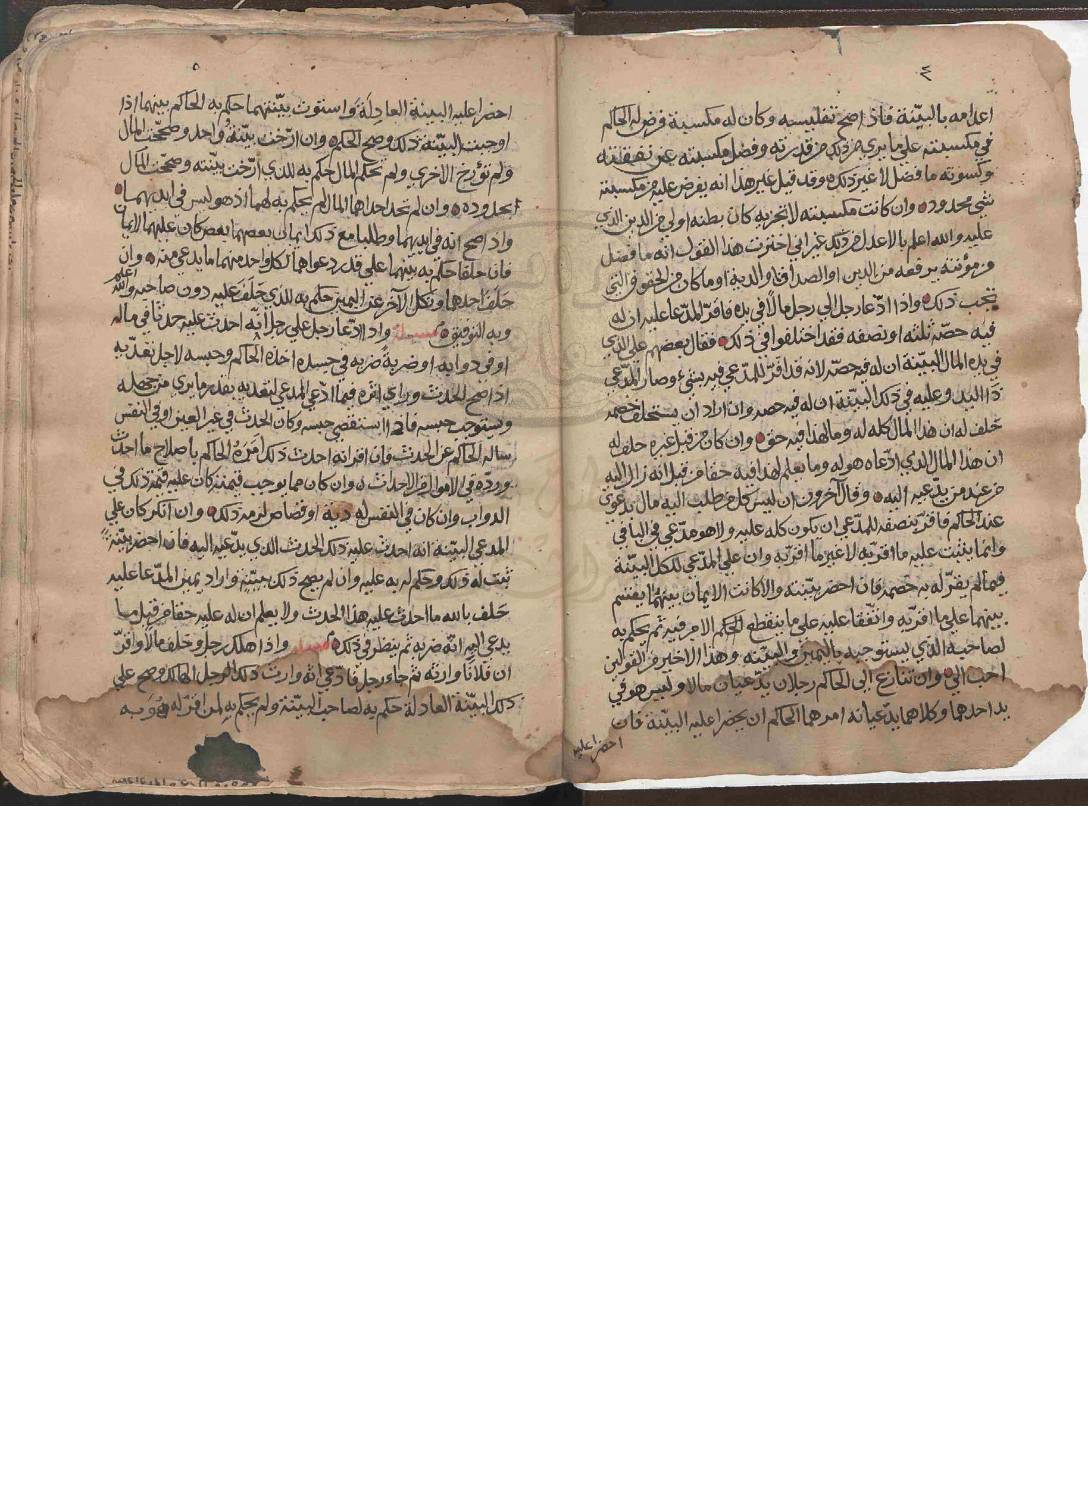 ٤
اعدامه بالبينة فاذا صح تفليسه وكان له مكسبة فرض له الحاكم
في مكسبته على ما يرى من ذلك من قدرته وفضل مكسبته عن نفقته
وكسوته ما فضل لا غير ذلك وقد قيل غير هذا انه يفرض عليه من مكسبته
شي محدود وان كانت مكسبته لا تجزيه كان بطنه اولى من الدين الذي
عليه والله اعلم بالاعدل من ذلك غير اني اخترت هذا القول انه ما فضل
من مؤنته يرفعه من الدين او الصداق او الدية او ما كان من الحقوق التي
تجب ذلك واذا ادعا رجل الى رجل مالا في يده فاقر المدعا عليه ان له
فيه حصة ثلثه او نصفه فقد اختلفوا في ذلك فقال بعضهم على الذي
في يده المال البينة ان له فيه حصة لانه قد اقر للمدعي فيه بشيء وصار المدعي
ذا اليد وعليه في ذلك البينة ان له فيه حصة وان اراد ان يستحلف خصمه
حلف له ان هذا المال كله له وما لهذا فيه حق وان كان من قبل غيره حلف له
ان هذا المال الذي ادعاه هو له وما يعلم لهذا فيه حقا من قبل انه زال اليه
من عند من يدعيه اليه وقال آخرون ان ليس كل من طلب اليه مال بدعوى
عند الحاكم فاقر بنصفه للمدعي ان يكون كله عليه ولا هو مدعي في الباقي
وانما يثبت عليه ما اقر به لا غير ما اقر به وان على المدعي لكل البينة
فيما لم يقر له به خصمه فان احضر بينته والا كانت الايمان بينهما يقتسم
بينهما على ما اقر به واتفقا عليه على ما ينقطع الحكم الامر فيه ثم يحكم به
لصاحبه الذي يستوجبه باليمين والبينه وهذا الاخير من القولين
احب الي وان تنازع الى الحاكم رجلان يدعيان مالا وليس هو في
يد احدهما وكلاهما يدعيانه امرهما الحاكم ان يحضرا عليه البينة فان
احضرا عليه
٥
احضرا عليه البينة العادلة واستوت بينتهما حكم به الحاكم بينهما اذا
اوجبت البينة ذلك وصح الحكم وان ارخت بينة واحد وصحت المال
ولم تؤرخ الاخرى ولم تحكم المال حكم به للذي ارخت بينته وصحت المال
بحدوده وان لم تحد احداهما المال لم يحكم به لهما اذ هو ليس في ايديهما
واذا صح انه في ايديهما وطلبا مع ذلك ايمان بعضهما بعض كان عليهما الايمان
فان حلفا حكم به بينهما على قدر دعواهما لكل واحد منهما ما يدعي منه وان
حلف احدهما ونكل الآخر عن اليمين حكم به للذي حلف عليه دون صاحبه والله اعلم
وبه التوفيق مسئلة واذا ادعا رجل على رجل انه احدث عليه حدثا في ماله
او في دوابه او ضربة ضربه في جسده اخذه الحاكم وحبسه لاجل تعديه
اذا صح الحدث وراى اثره فيما ادعى المدعي لتعديه بقدر ما يرى من جهله
ويستوجب حبسه فاذا استقضى حبسه وكان الحدث في غير العين او في النفس
ساله الحاكم عن الحدث فان اقر انه احدث ذلك امره الحاكم باصلاح ما احدث
ورده في الاموال الاحداث وان كان مما يوجب قيمته كان عليه قيمة ذلك في
الدواب وان كان في النفس له دية او قصاص لزمه ذلك وان انكر كان على
المدعي البينة انه احدث عليه ذلك الحدث الذي يدعيه اليه فان احضر بينة
ثبت له ذلك وحكم له به عليه وان لم يصح ذلك ببينة واراد يمين المدعا عليه
حلف بالله ما احدث عليه هذا الحدث ولا يعلم ان له عليه حقا من قبل ما
يدعي اليه انه ضربه ثم ينظر في ذلك مسئلة واذا هلك رجل وخلف مالا واقر
ان فلانا وارثه ثم جاء رجل فادعى انه وارث ذلك الرجل الهالك وصح على
ذلك البينة العادلة حكم به لصاحب البينة ولم يحكم به لمن اقر له وبه